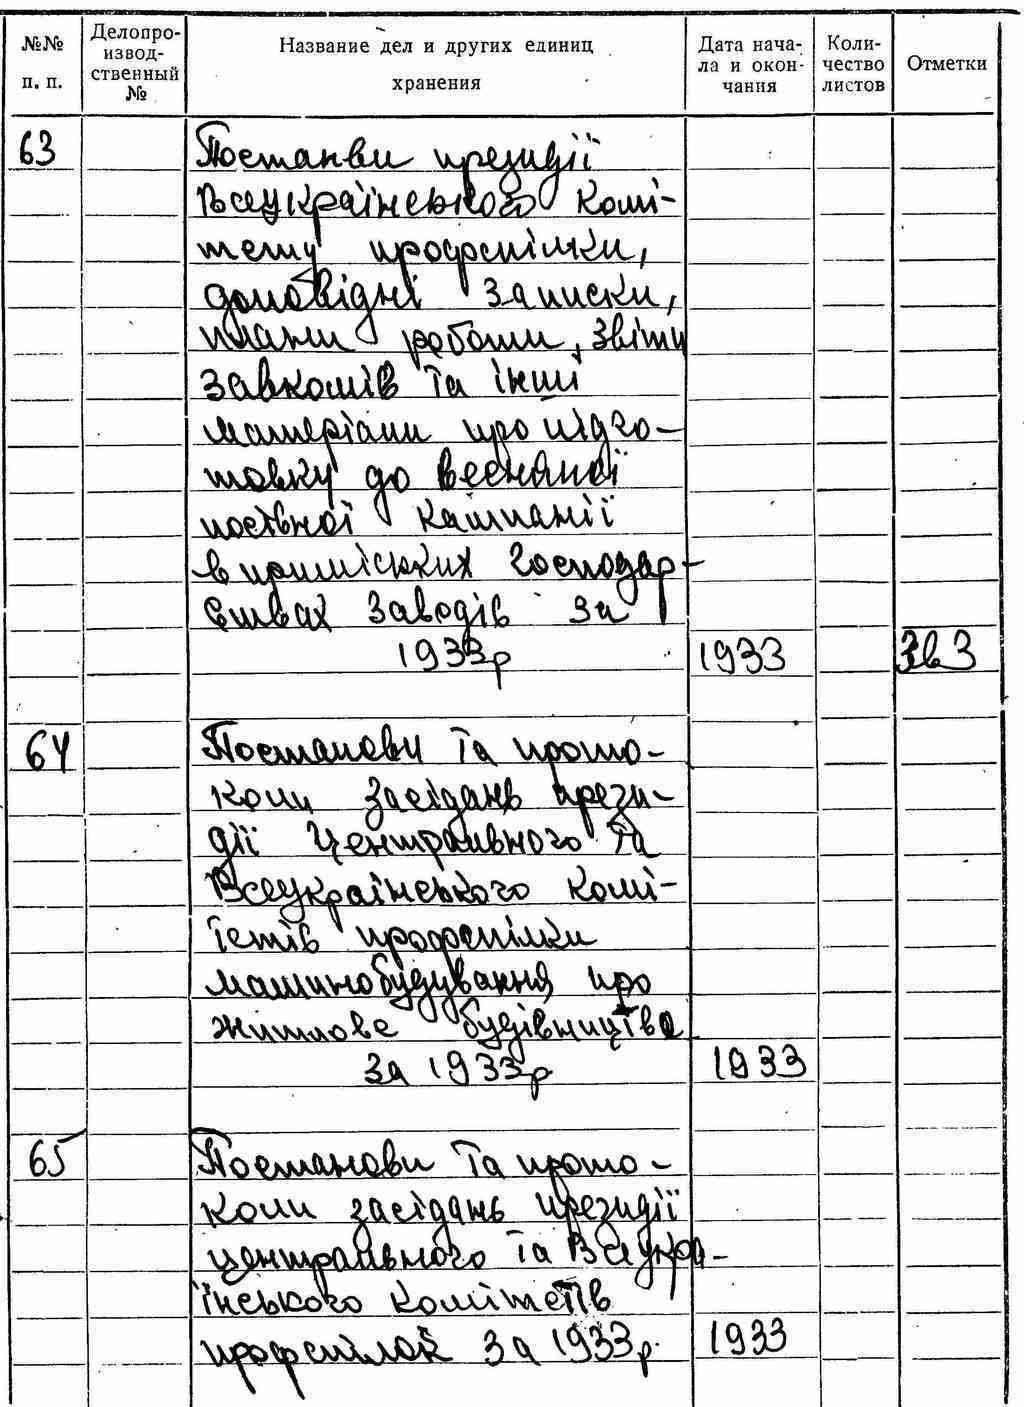 №№ п. п.
Делопро-
извод-
ственный
№
Название дел и других единиц
хранения
Дата нача-
ла и окон-
чания
Коли-
чество
листов
Отметки
63
Постанви президії
Всеукраїнського комі-
тету профспілки,
доповідні записки,
плани роботи, звіти
завкомів та інші
матеріали про підго-
товку до весняної
посівної кампанії
в приміських господар-
ствах заводів за
1933р 1933
64
Постанови та прото-
коли засідань прези-
дії Центрального та
Всеукраїнського комі-
тетів профспілки
машинобудування про
житлове будівництво
за 1933р 1933
65
Постанови та прото-
коли засідань президії
центрального та Всеукра-
їнського комітетів
профспілок за 1933р. 1933